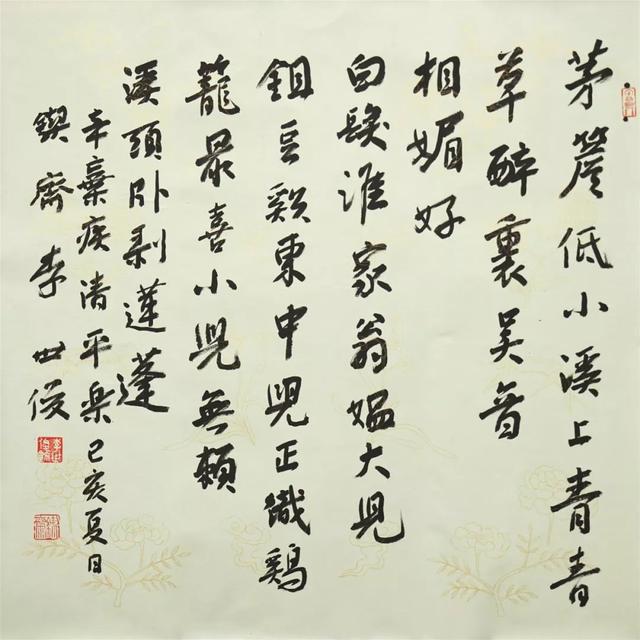 茅簷低小溪上青青
草醉裏吳音
相媚好
白髮誰家翁媼大兒
鉏豆谿東中兒正織鷄
籠最喜小兒無賴
溪頭卧剥蓮蓬
辛棄疾清平樂己亥夏日
鍥齋李世俊